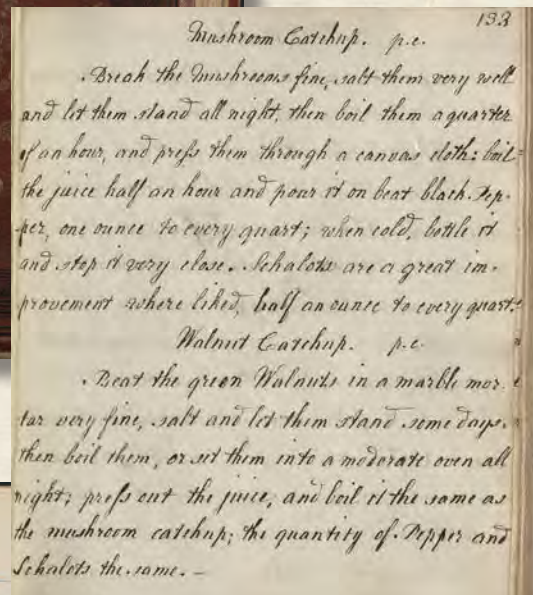 133
Mushroom Catchup. p.c.
Break the Mushrooms fine, salt them very well
and let them stand all night, then boil them a quarter
of an hour, and press them through a canvas cloth: boil
the juice half an hour and pour it on beat black Pep-
per, one ounce to every quart; when cold, bottle it
and stop it very close. Schalots are a great im-
provement where liked, half an ounce to every quart.
Walnut Catchup. p.c.
Beat the green Walnuts in a marble mor-
tar very fine, salt and let them stand some days.
then boil them, or set them into a moderate oven all
night; press out the juice, and boil it the same as
the mushroom catchup; the quantity of Pepper and
Schalots the same. –